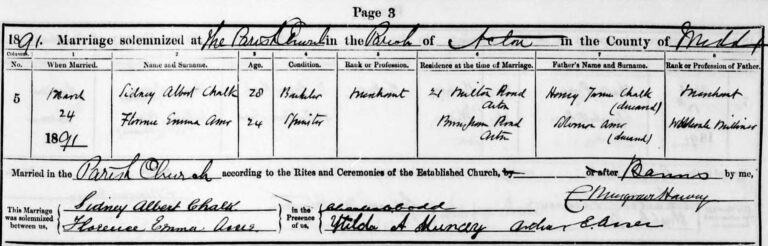 Page 3
1891. Marriage solemnized at The Parish Church in the Parish of Acton in the County of Middx
Columns. 1 2 3 4 5 6 7 8
No. When Married. Name and Surname. Age. Condition. Rank or Profession. Residence at the time of Marriage. Father's Name and Surname. Rank or Profession of Father.
5 March 24 1891 Sidney Albert Chalk 28 Bachelor Merchant 21 Milton Road Acton Henry James Chalk (deceased) Merchant
Florence Emma Ames 24 Spinster Road Acton Ames (deceased) Wholesale Milliner
Married in the Parish Church according to the Rites and Ceremonies of the Established Church, by or after Banns by me,
C Musgrave Harvey
This Marriage was solemnized between us,
Sidney Albert Chalk
Florence Emma Ames
in the Presence of us,
Hilda A Muncey